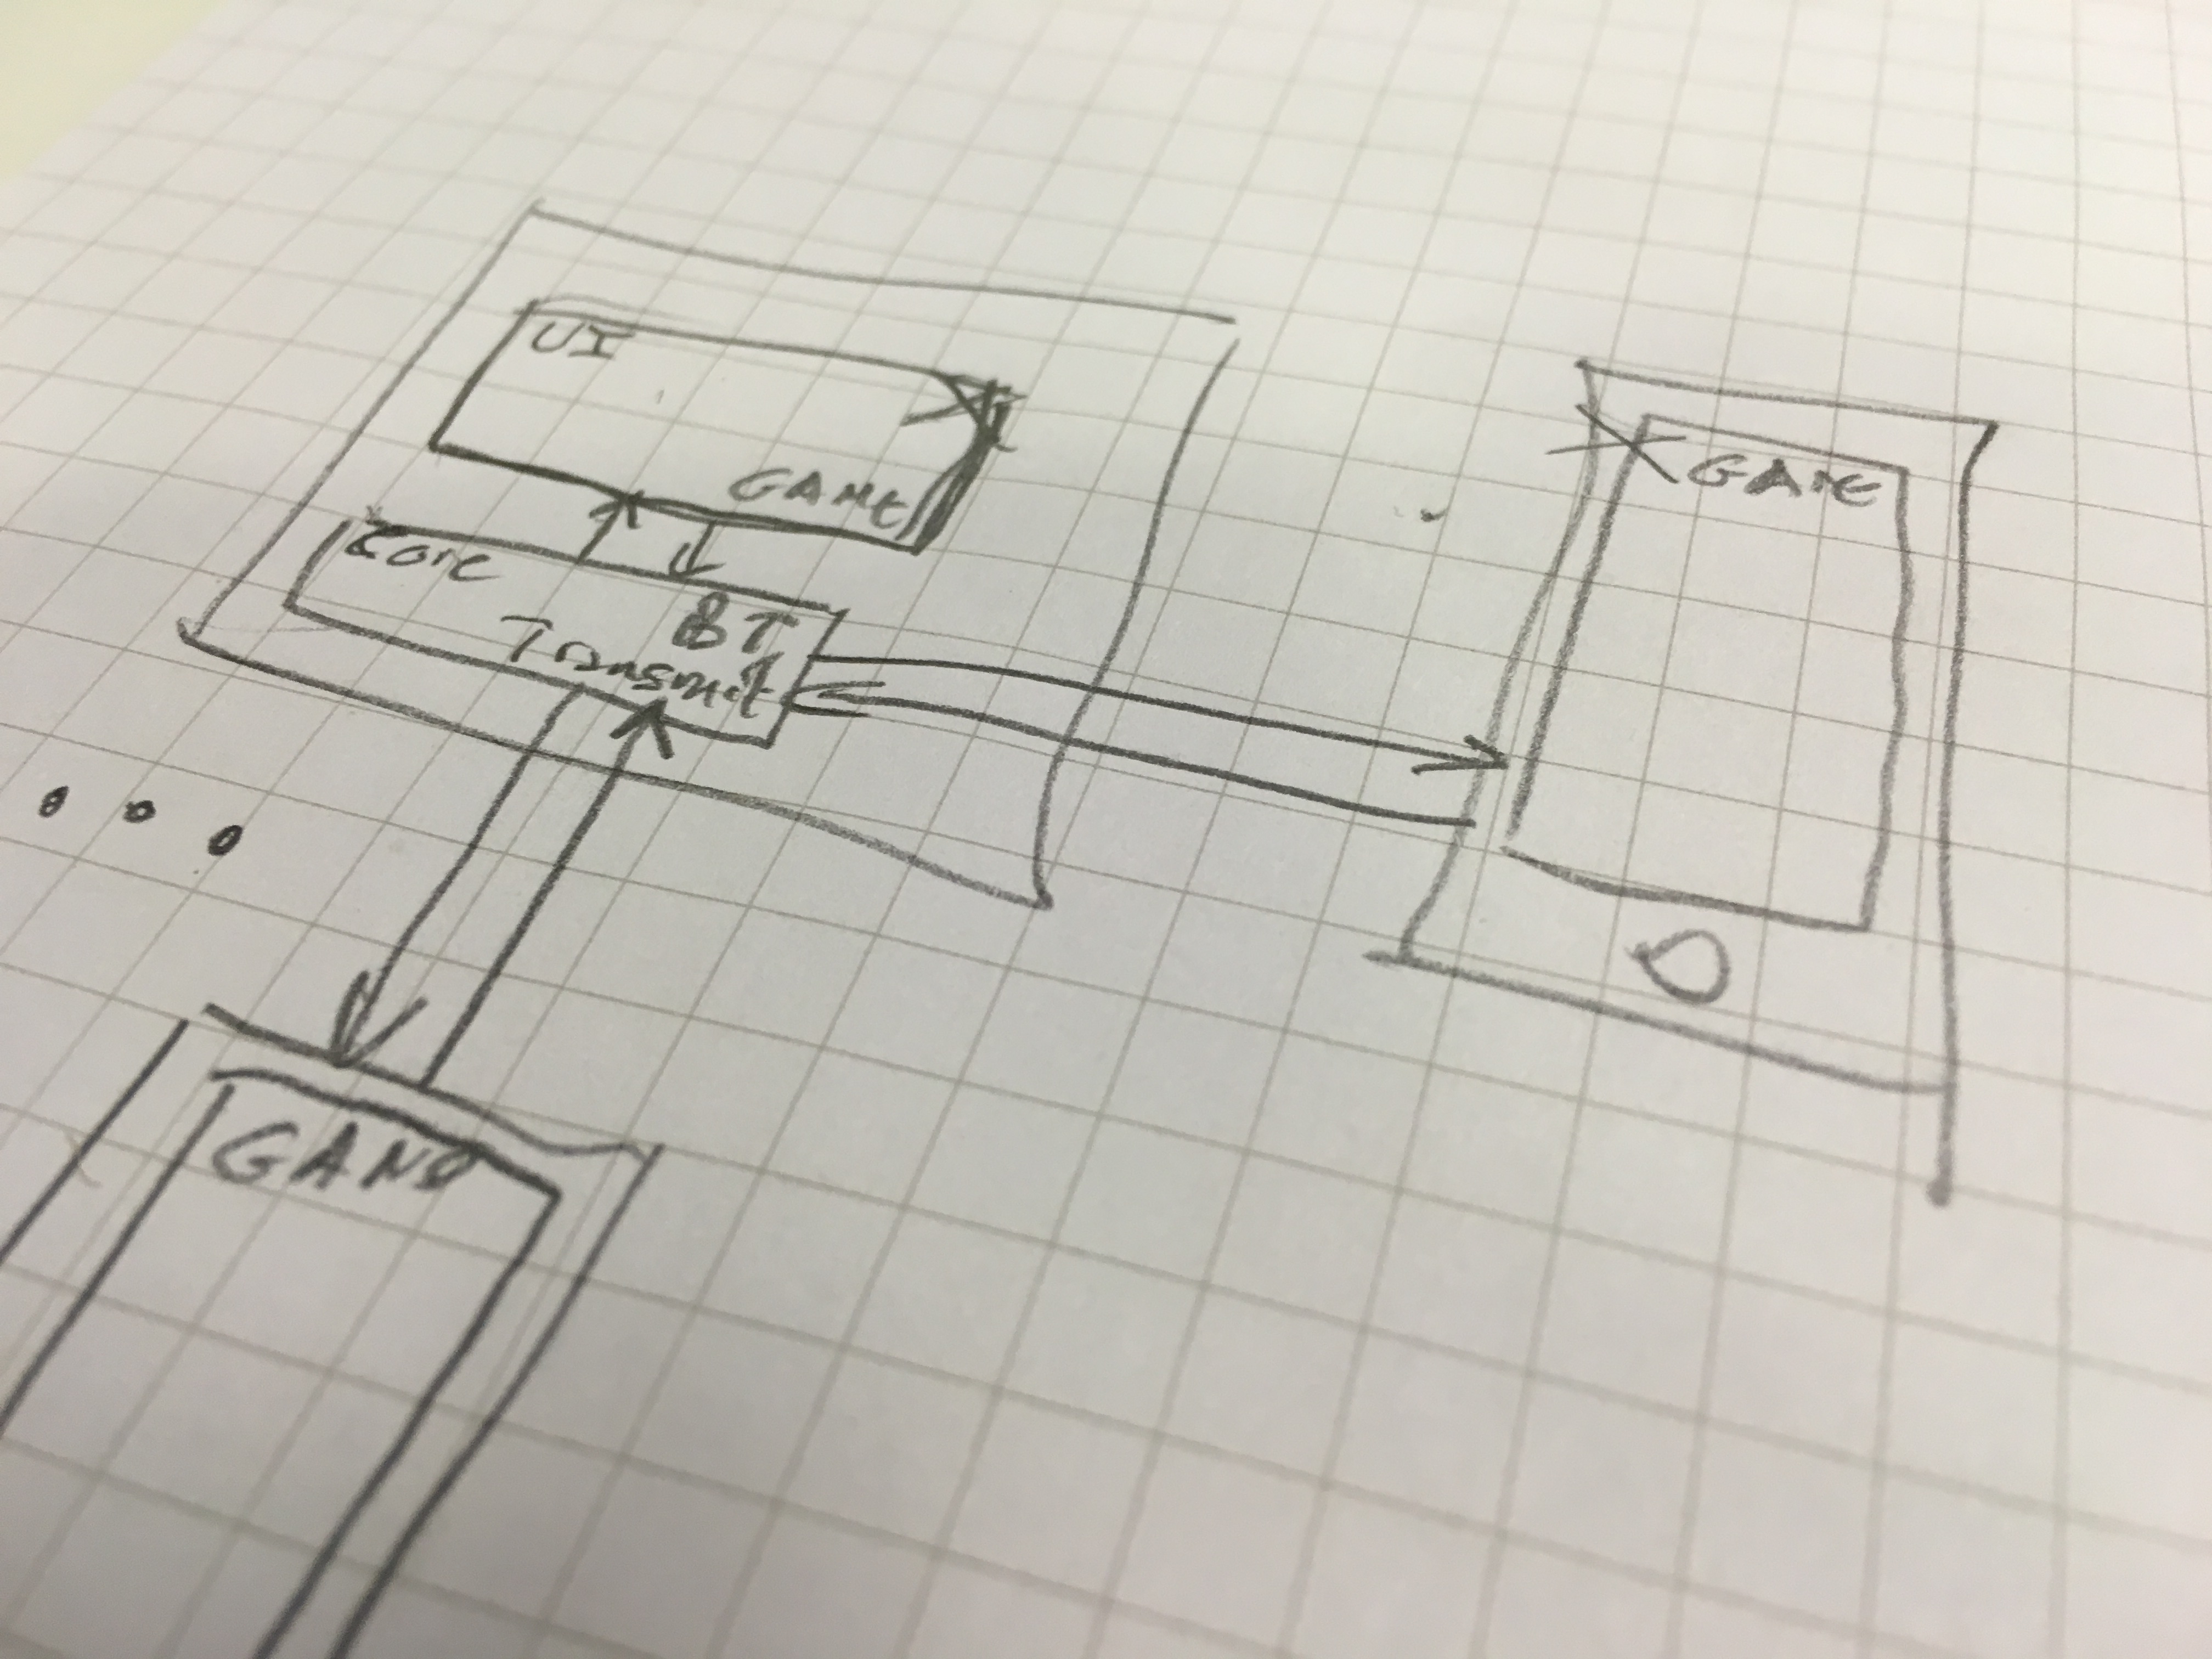 UI
GAME
Core
BT
Transmit
GAME
GAME